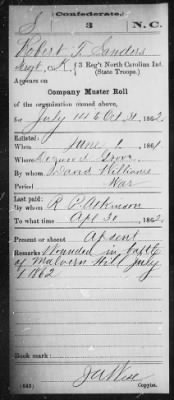 Confederate.
S 3 N.C.
Robert T. Sanders
Sergt, K, 3 Reg't North Carolina Inf.
(State Troops.)
Appears on
Company Muster Roll
of the organization named above,
for July 1st to Oct 31, 1862.
Enlisted:
When June 1, 1861
Where Grove
By whom David Williams
Period War
Last paid:
By whom R P Atkinson
To what time Apl 30, 1862.
Present or absent Absent
Remarks: Wounded in battle
of Malvern Hill July
1 1862
Book mark:
(642) Copyist.